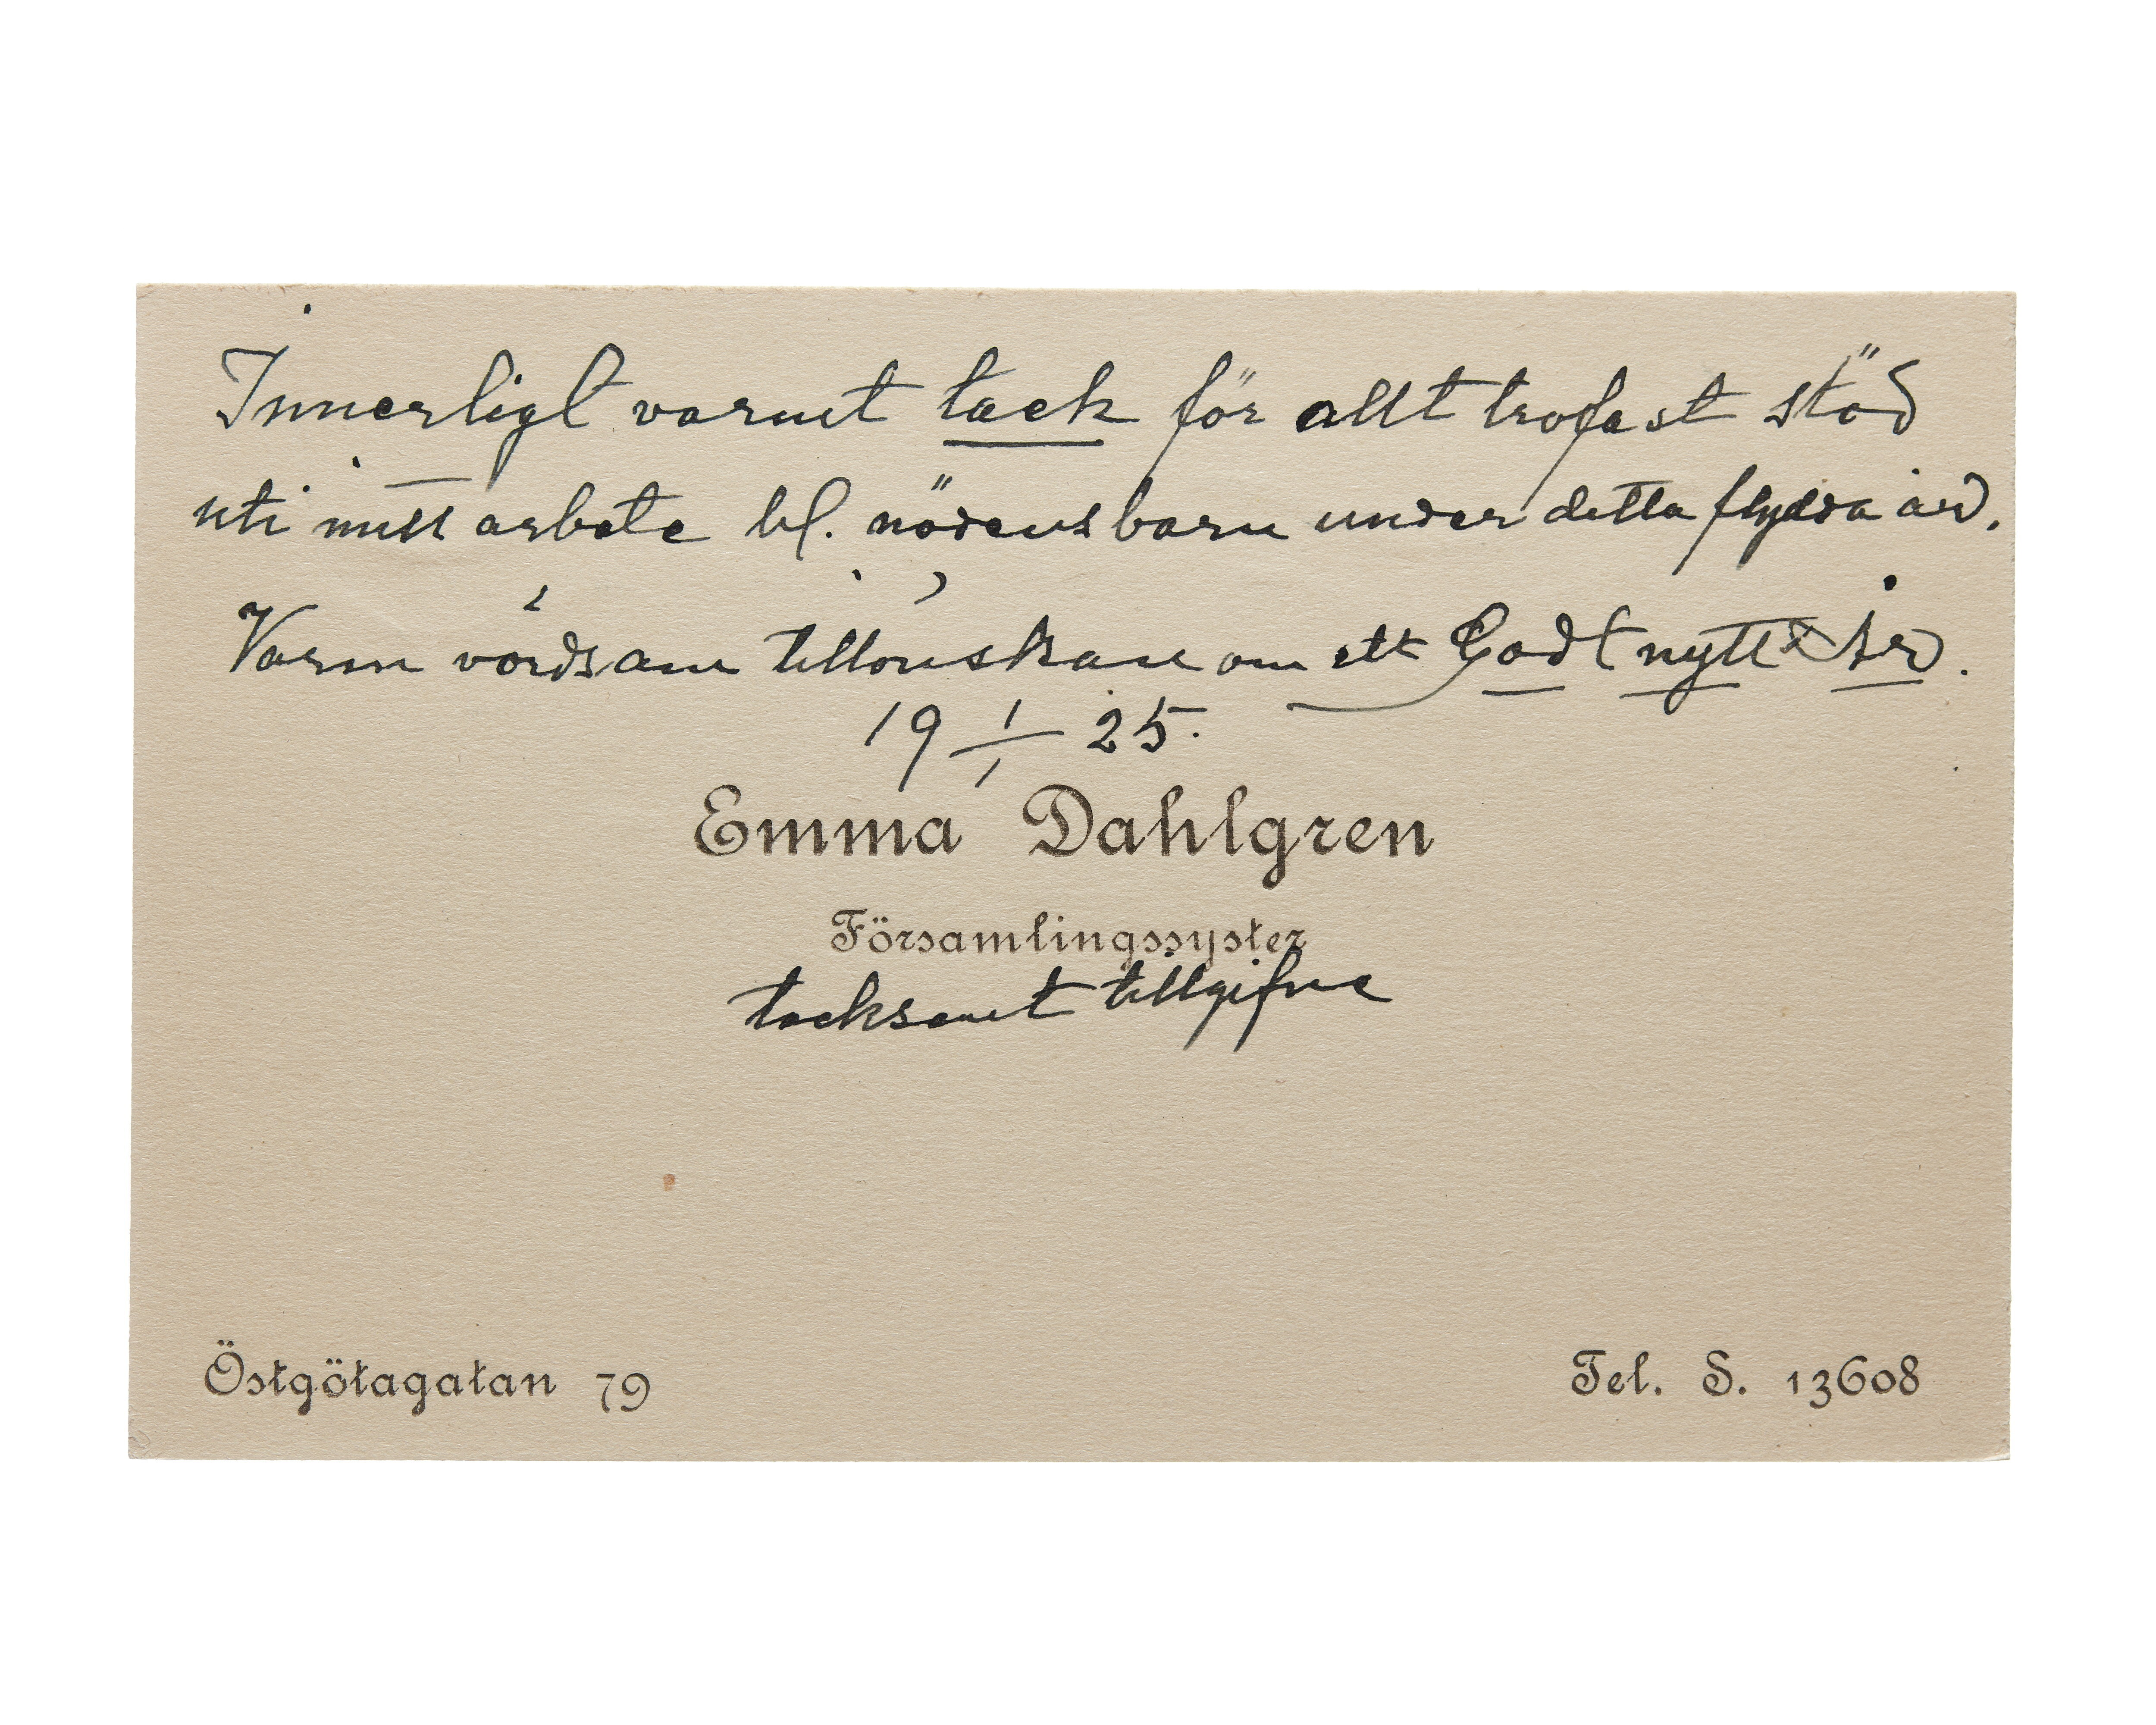 Innerligt varmt tack för allt trofast stöd
uti mitt arbete bl. nödens barn under detta flydda år.
Varm vördsam tillönskan om ett Godt nytt År.
19 1/1 25.
Emma Dahlgren
Församlingssyster
tacksamt tillgifne
Östgötagatan 79
Tel. S. 13608